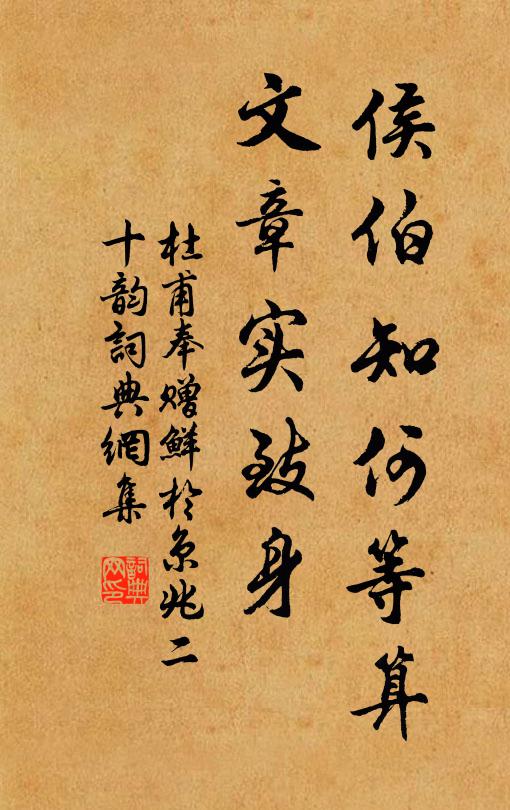 侯伯知何等算
文章实致身
杜甫奉赠鮮於京兆二
十韵詞典網集
詞典
网印